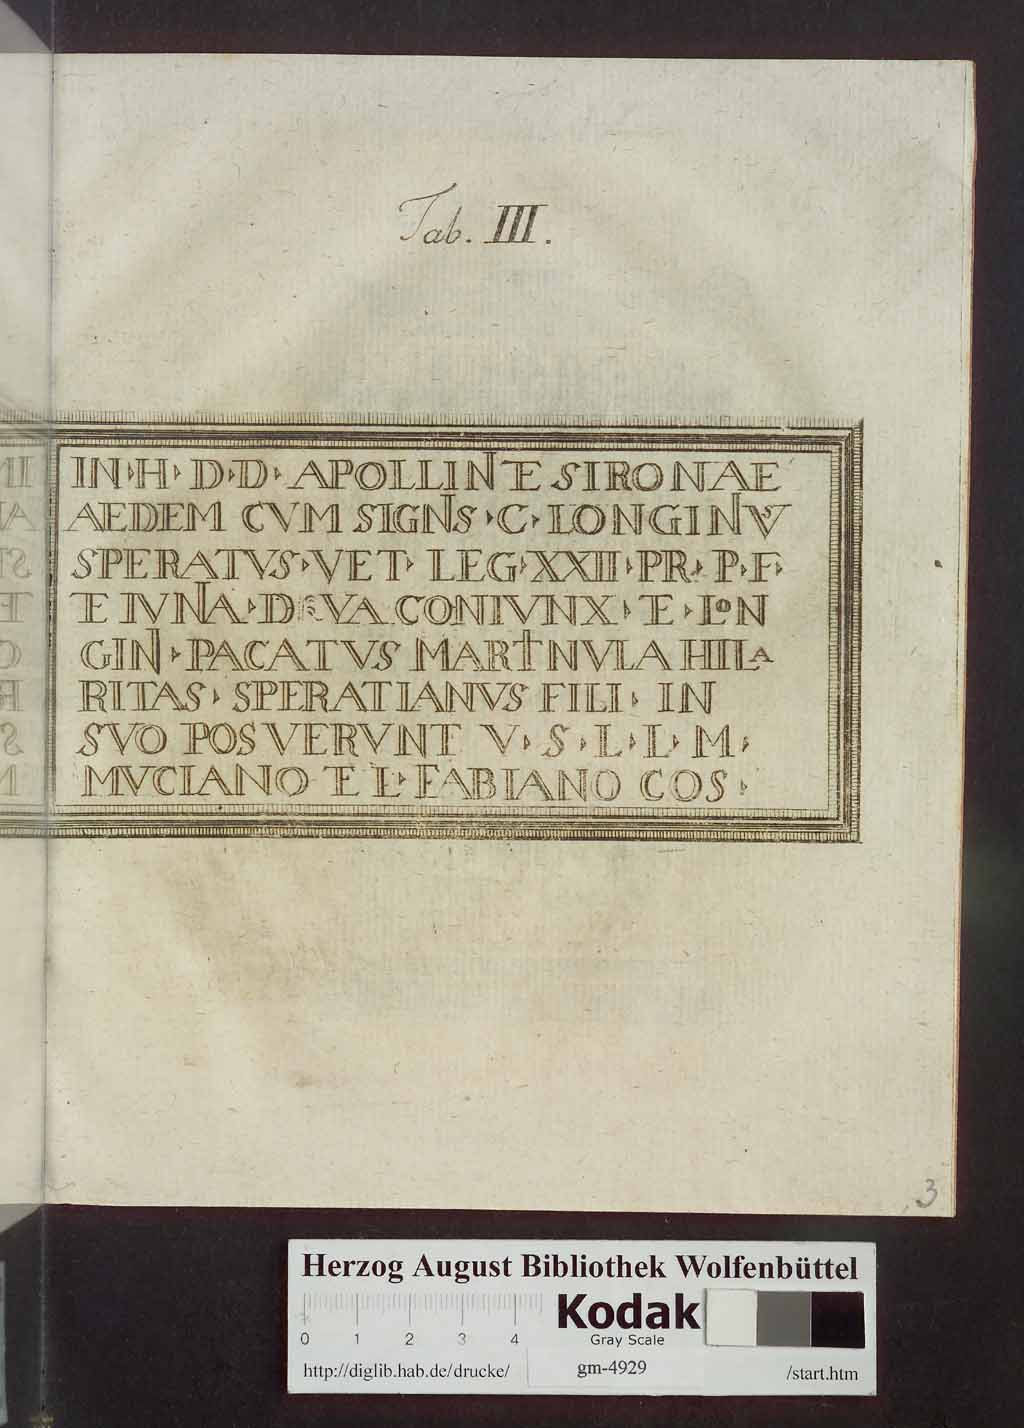 Tab. III.
IN·H·D·D· APOLLINE SIRONAE
AEDEM CVM SIGNS·C·LONGINVS
SPERATVS·VET·LEG·XXII·PR·P·F·
E IVNA·D VA CONIVNX·E·LON
GIN·PACATVS MARTNVLA HILA
RITAS·SPERATIANVS FILI·IN
SVO POSVERVNT V·S·L·L·M·
MVCIANO E L·FABIANO COS·
3
Herzog August Bibliothek Wolfenbüttel
0 1 2 3 4
Kodak
Gray Scale
http://diglib.hab.de/drucke/ gm-4929 /start.htm